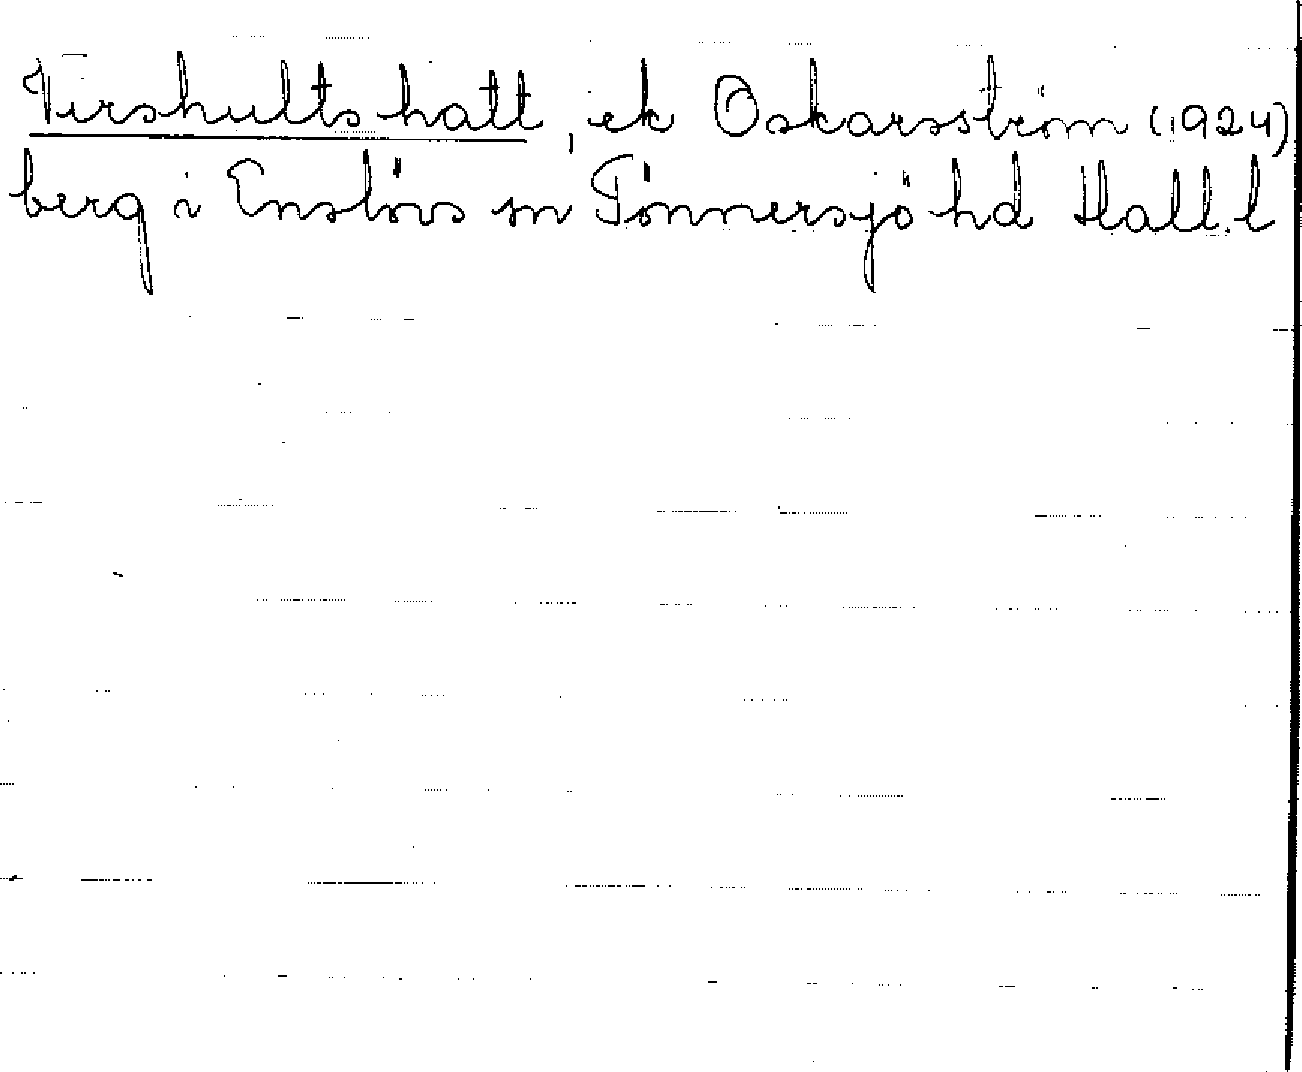 Virshultshatt, ek Oskarsström (1924)
berg i Enslövs sn Tönnersjö hd Hall. l